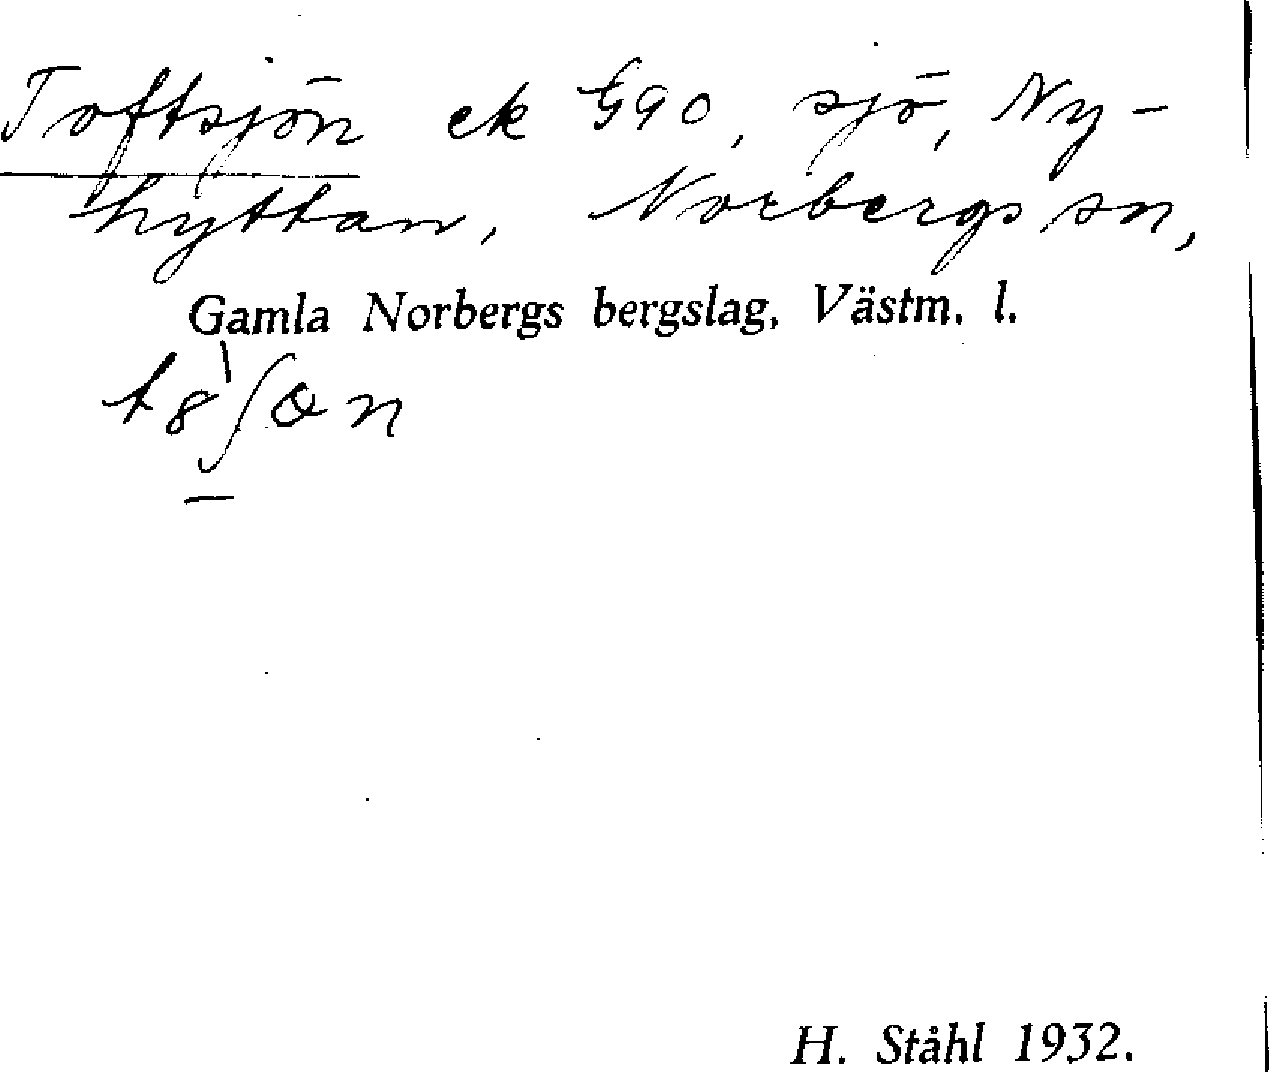 Toftsjön ek G90, sjö, Ny-
hyttan, Norbergs sn,
Gamla Norbergs bergslag, Västm. l.
H. Ståhl 1932.